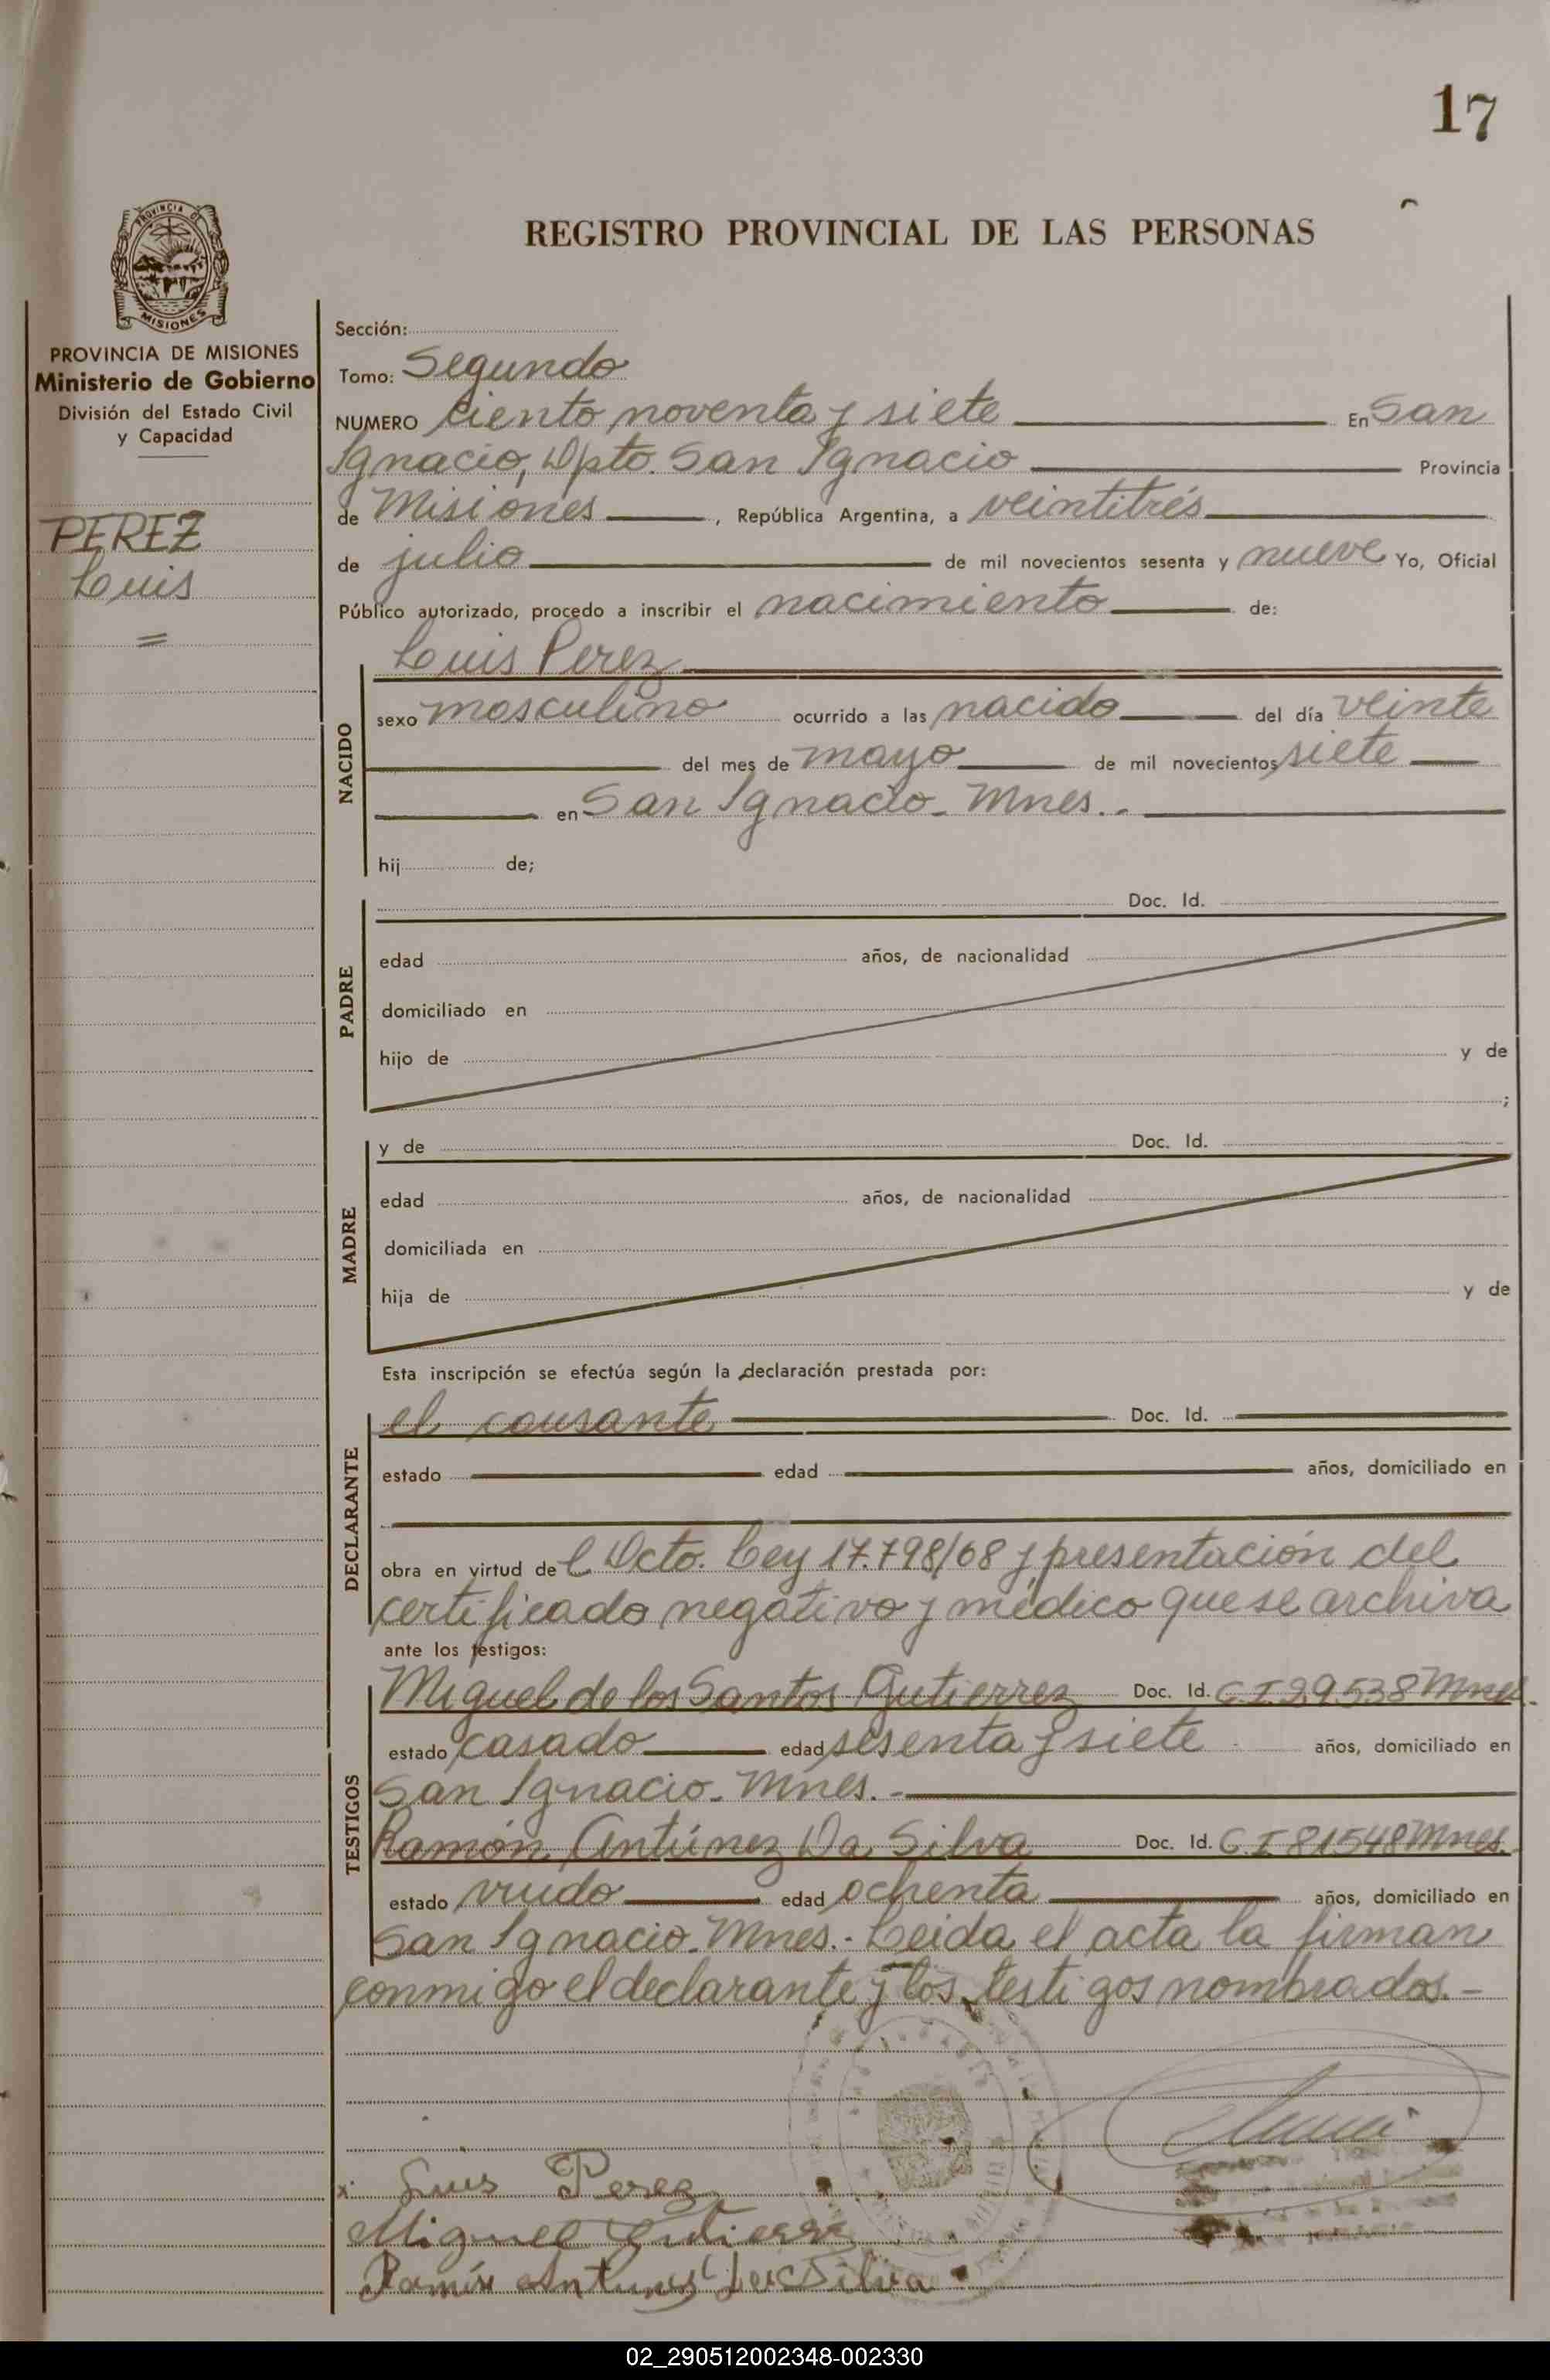 17
REGISTRO PROVINCIAL DE LAS PERSONAS
PROVINCIA DE
MISIONES
PROVINCIA DE MISIONES
Ministerio de Gobierno
División del Estado Civil
y Capacidad
PEREZ
Luis
Sección:
Tomo: Segundo
NUMERO ciento noventa y siete En San
Ignacio, Dpto. San Ignacio Provincia
de Misiones, República Argentina, a veintitrés
de julio de mil novecientos sesenta y nueve Yo, Oficial
Público autorizado, procedo a inscribir el nacimiento de:
Luis Perez
NACIDO
sexo masculino ocurrido a las nacido del día veinte
del mes de mayo de mil novecientos siete
en San Ignacio - Mnes. -
hij de;
PADRE
Doc. Id.
edad años, de nacionalidad
domiciliado en
hijo de y de
;
MADRE
y de Doc. Id.
edad años, de nacionalidad
domiciliada en
hija de y de
Esta inscripción se efectúa según la declaración prestada por:
DECLARANTE
el causante Doc. Id.
estado edad años, domiciliado en
obra en virtud del Dcto. Ley 17.798/68 y presentación del
certificado negativo y médico que se archiva
ante los testigos:
TESTIGOS
Miguel de los Santos Gutierrez Doc. Id. C I 29538 Mnes.
estado casado edad sesenta y siete años, domiciliado en
San Ignacio - Mnes. -
Ramón Antúnez Da Silva Doc. Id. C. I 81548 Mnes.
estado viudo edad ochenta años, domiciliado en
San Ignacio - Mnes. - Leida el acta la firman
conmigo el declarante y los testigos nombrados. -
x Luis Perez
Miguel Gutierrez
Ramón Antunes Da Silva
02_290512002348-002330